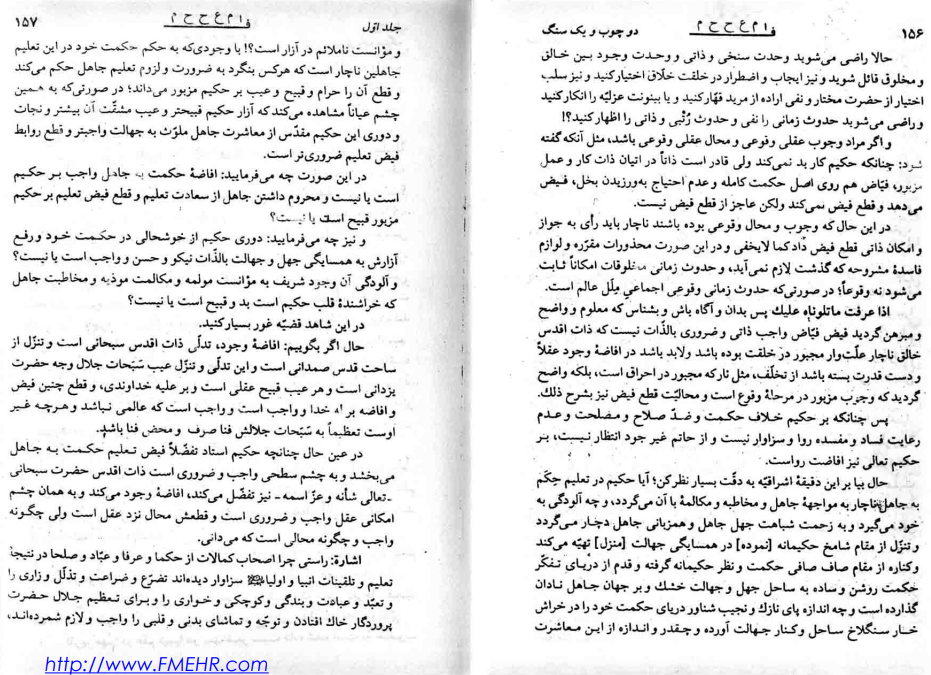 ۱۵۶
دو چوب و یک سنگ
حالا راضی می‌شوید وحدت سنخی و ذاتی و وحدت وجود بین خالق
و مخلوق قائل شوید و نیز ایجاب و اضطرار در خلقت خلاق اختیار کنید و نیز سلب
اختیار از حضرت مختار و نفی اراده از مرید قهّار کنید و یا بینونت عزلیّه را انکار کنید
و راضی می‌شوید حدوث زمانی را نفی و حدوث رُتْبی و ذاتی را اظهار کنید؟!
و اگر مراد وجوب عقلی وقوعی و محال عقلی وقوعی باشد، مثل آنکه گفته
شود: چنانکه حکیم کار بد نمی‌کند ولی قادر است ذاتاً در اتیان ذات کار و عمل
مزبوره، فیّاض هم روی اصل حکمت کامله و عدم احتیاج به‌ورزیدن بخل، فیض
می‌دهد و قطع فیض نمی‌کند ولکن عاجز از قطع فیض نیست.
در این حال که وجوب و محال وقوعی بوده باشند ناچار باید رأی به جواز
و امکان ذاتی قطع فیض داد کما لایخفی و در این صورت محذورات مقرّره و لوازم
فاسدهٔ مشروحه که گذشت لازم نمی‌آید، و حدوث زمانی مخلوقات امکاناً ثابت
می‌شود نه وقوعاً؛ در صورتی‌که حدوث زمانی وقوعی اجماعیِ مِلَل عالم است.
اذا عرفت ماتلوناه علیك پس بدان و آگاه باش و بشناس که معلوم و واضح
و مبرهن گردید فیض فیّاض واجب ذاتی و ضروری بالذّات نیست که ذات اقدس
خالق ناچار علّت‌وار مجبور در خلقت بوده باشد ولابد باشد در افاضهٔ وجود عقلاً
و دست قدرت بسته باشد از تخلّف، مثل نار که مجبور در احراق است، بلکه واضح
گردید که وجوب مزبور در مرحلهٔ وقوع است و محالیّت قطع فیض نیز بشرح ذلك.
پس چنانکه بر حکیم خلاف حکمت و ضدّ صلاح و مصلحت و عدم
رعایت فساد و مفسده روا و سزاوار نیست و از حاتم غیر جود انتظار نیست، بر
حکیم تعالی نیز افاضت رواست.
حال بیا بر این دقیقهٔ اشراقیّه به دقّت بسیار نظر کن؛ آیا حکیم در تعلیم حِکَم
به جاهل ناچار به مواجههٔ جاهل و مخاطبه و مکالمهٔ با آن می‌گردد، و چه آلودگی به
خود می‌گیرد و به زحمت شباهت جهل جاهل و همزبانی جاهل دچار می‌گردد
و تنزّل از مقام شامخ حکیمانه [نموده] در همسایگی جهالت [منزل] تهیّه می‌کند
و کناره از مقام صاف صافی حکمت و نظر حکیمانه گرفته و قدم از دریای تفکّر
حکمت روشن و ساده به ساحل جهل و جهالت خشك و بر جهان جاهل نادان
گذارده است و چه اندازه پای نازك و نجیب شناور دریای حکمت خود را در خراش
خار سنگلاخ ساحل و کنار جهالت آورده و چقدر و اندازه از این معاشرت
جلد اوّل
۱۵۷
و مؤانست ناملائم در آزار است؟! با وجودی‌که به حکم حکمت خود در این تعلیم
جاهلین ناچار است که هرکس بنگرد به ضرورت و لزوم تعلیم جاهل حکم می‌کند
و قطع آن را حرام و قبیح و عیب بر حکیم مزبور می‌داند؛ در صورتی‌که به همین
چشم عیاناً مشاهده می‌کند که آزار حکیم قبیحتر و عیب مشقّت آن بیشتر و نجات
و دوری این حکیم مقدّس از معاشرت جاهل ملوّث به جهالت واجبتر و قطع روابط
فیض تعلیم ضروری‌تر است.
در این صورت چه می‌فرمایید: افاضهٔ حکمت به جاهل واجب بر حکیم
است یا نیست و محروم داشتن جاهل از سعادت تعلیم و قطع فیض تعلیم بر حکیم
مزبور قبیح است یا نیست؟
و نیز چه می‌فرمایید: دوری حکیم از خوشحالی در حکمت خود و رفع
آزارش به همسایگی جهل و جهالت بالذّات نیکو و حسن و واجب است یا نیست؟
و آلودگی آن وجود شریف به مؤانست مولمه و مکالمت موذیه و مخاطبت جاهل
که خراشندهٔ قلب حکیم است بد و قبیح است یا نیست؟
در این شاهد قضیّه غور بسیار کنید.
حال اگر بگوییم: افاضهٔ وجود، تدلّی ذات اقدس سبحانی است و تنزّل از
ساحت قدس صمدانی است و این تدلّی و تنزّل عیب سُبُحات جلال وجه حضرت
یزدانی است و هر عیب قبیح عقلی است و بر علیه خداوندی، و قطع چنین فیض
و افاضه بر له خدا و واجب است و واجب است که عالمی نباشد و هرچه غیر
اوست تعظیماً به سُبُحات جلالش فنا صرف و محض فنا باشد.
در عین حال چنانچه حکیم استاد تفضّلاً فیض تعلیم حکمت به جاهل
می‌بخشد و به چشم سطحی واجب و ضروری است ذات اقدس حضرت سبحانی
- تعالی شأنه و عزّ اسمه - نیز تفضّل می‌کند، افاضهٔ وجود می‌کند و به همان چشم
امکانی عقل واجب و ضروری است و قطعش محال نزد عقل است ولی چگونه
واجب و چگونه محالی است که می‌دانی.
اشاره: راستی چرا اصحاب کمالات از حکما و عرفا و عبّاد و صلحا در نتیجهٔ
تعلیم و تلقینات انبیا و اولیا سزاوار دیده‌اند تضرّع و ضراعت و تذلّل و زاری را
و تعبّد و عبادت و بندگی و کوچکی و خواری را و برای تعظیم جلال حضرت
پروردگار خاك افتادن و توجّه و تماشای بدنی و قلبی را واجب و لازم شمرده‌اند،
http://www.FMEHR.com